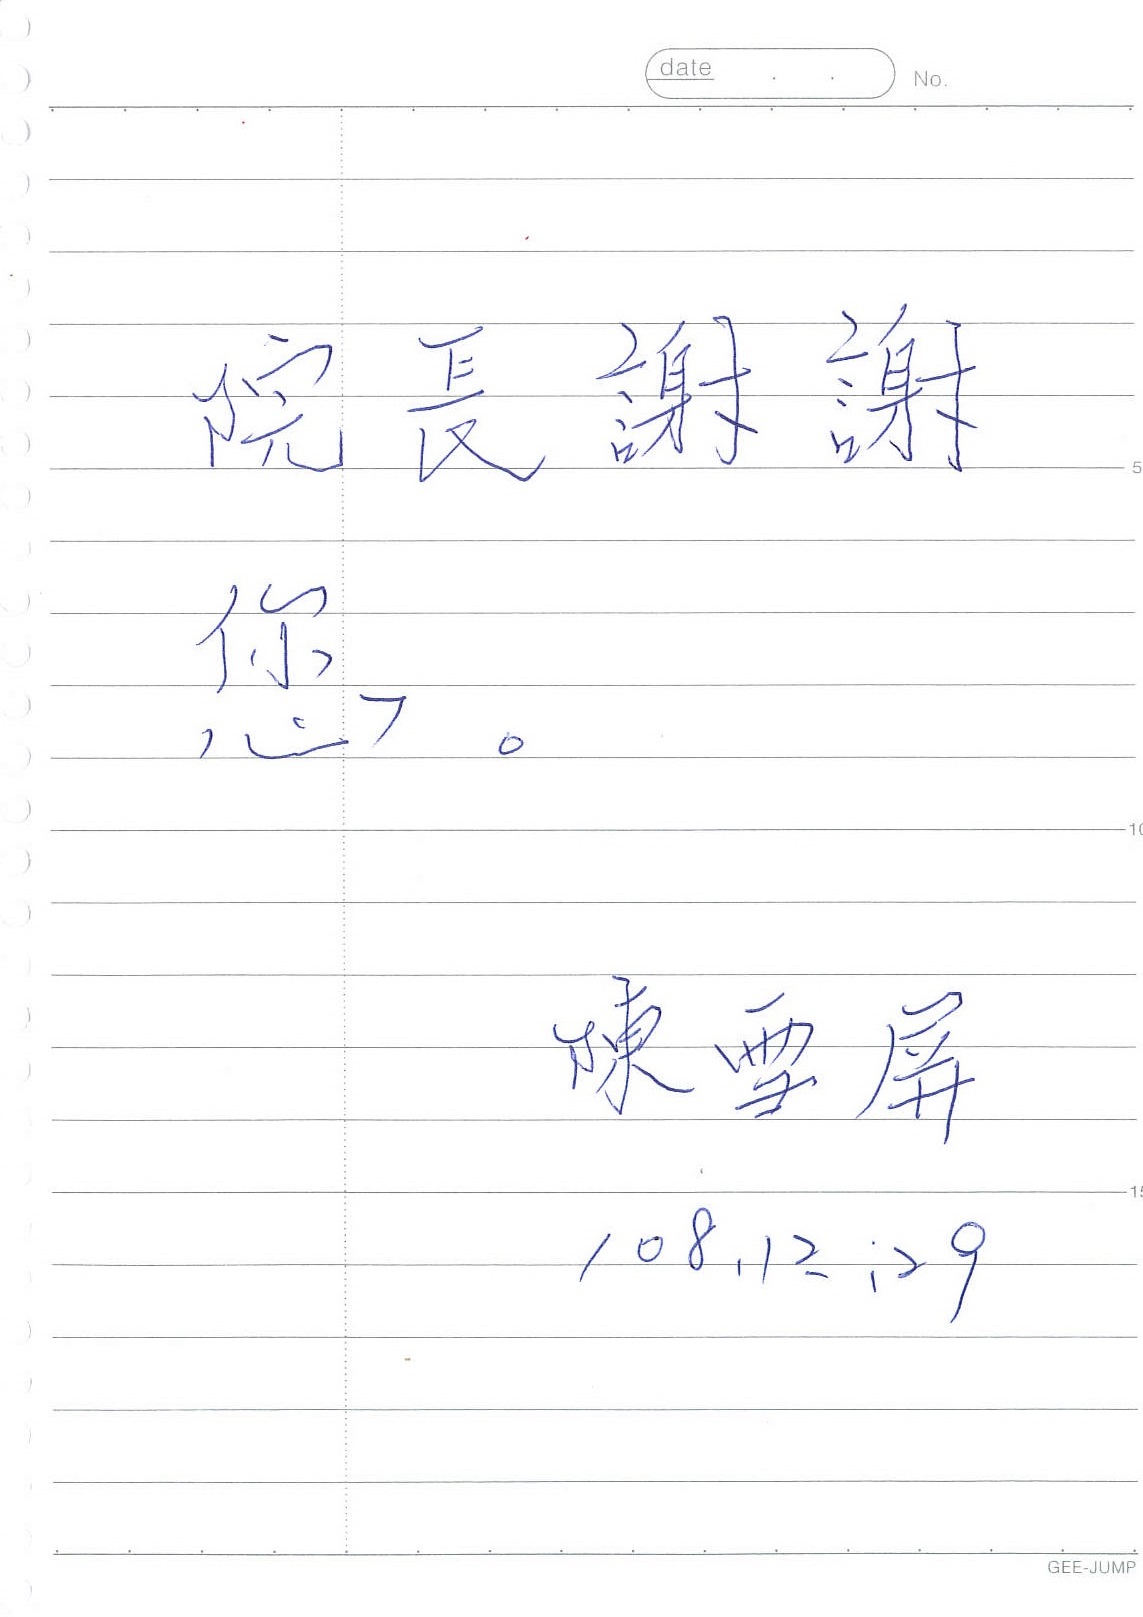 date . . No.
院長謝謝
5
您。
10
陳雪屏
15
108.12.29
GEE-JUMP